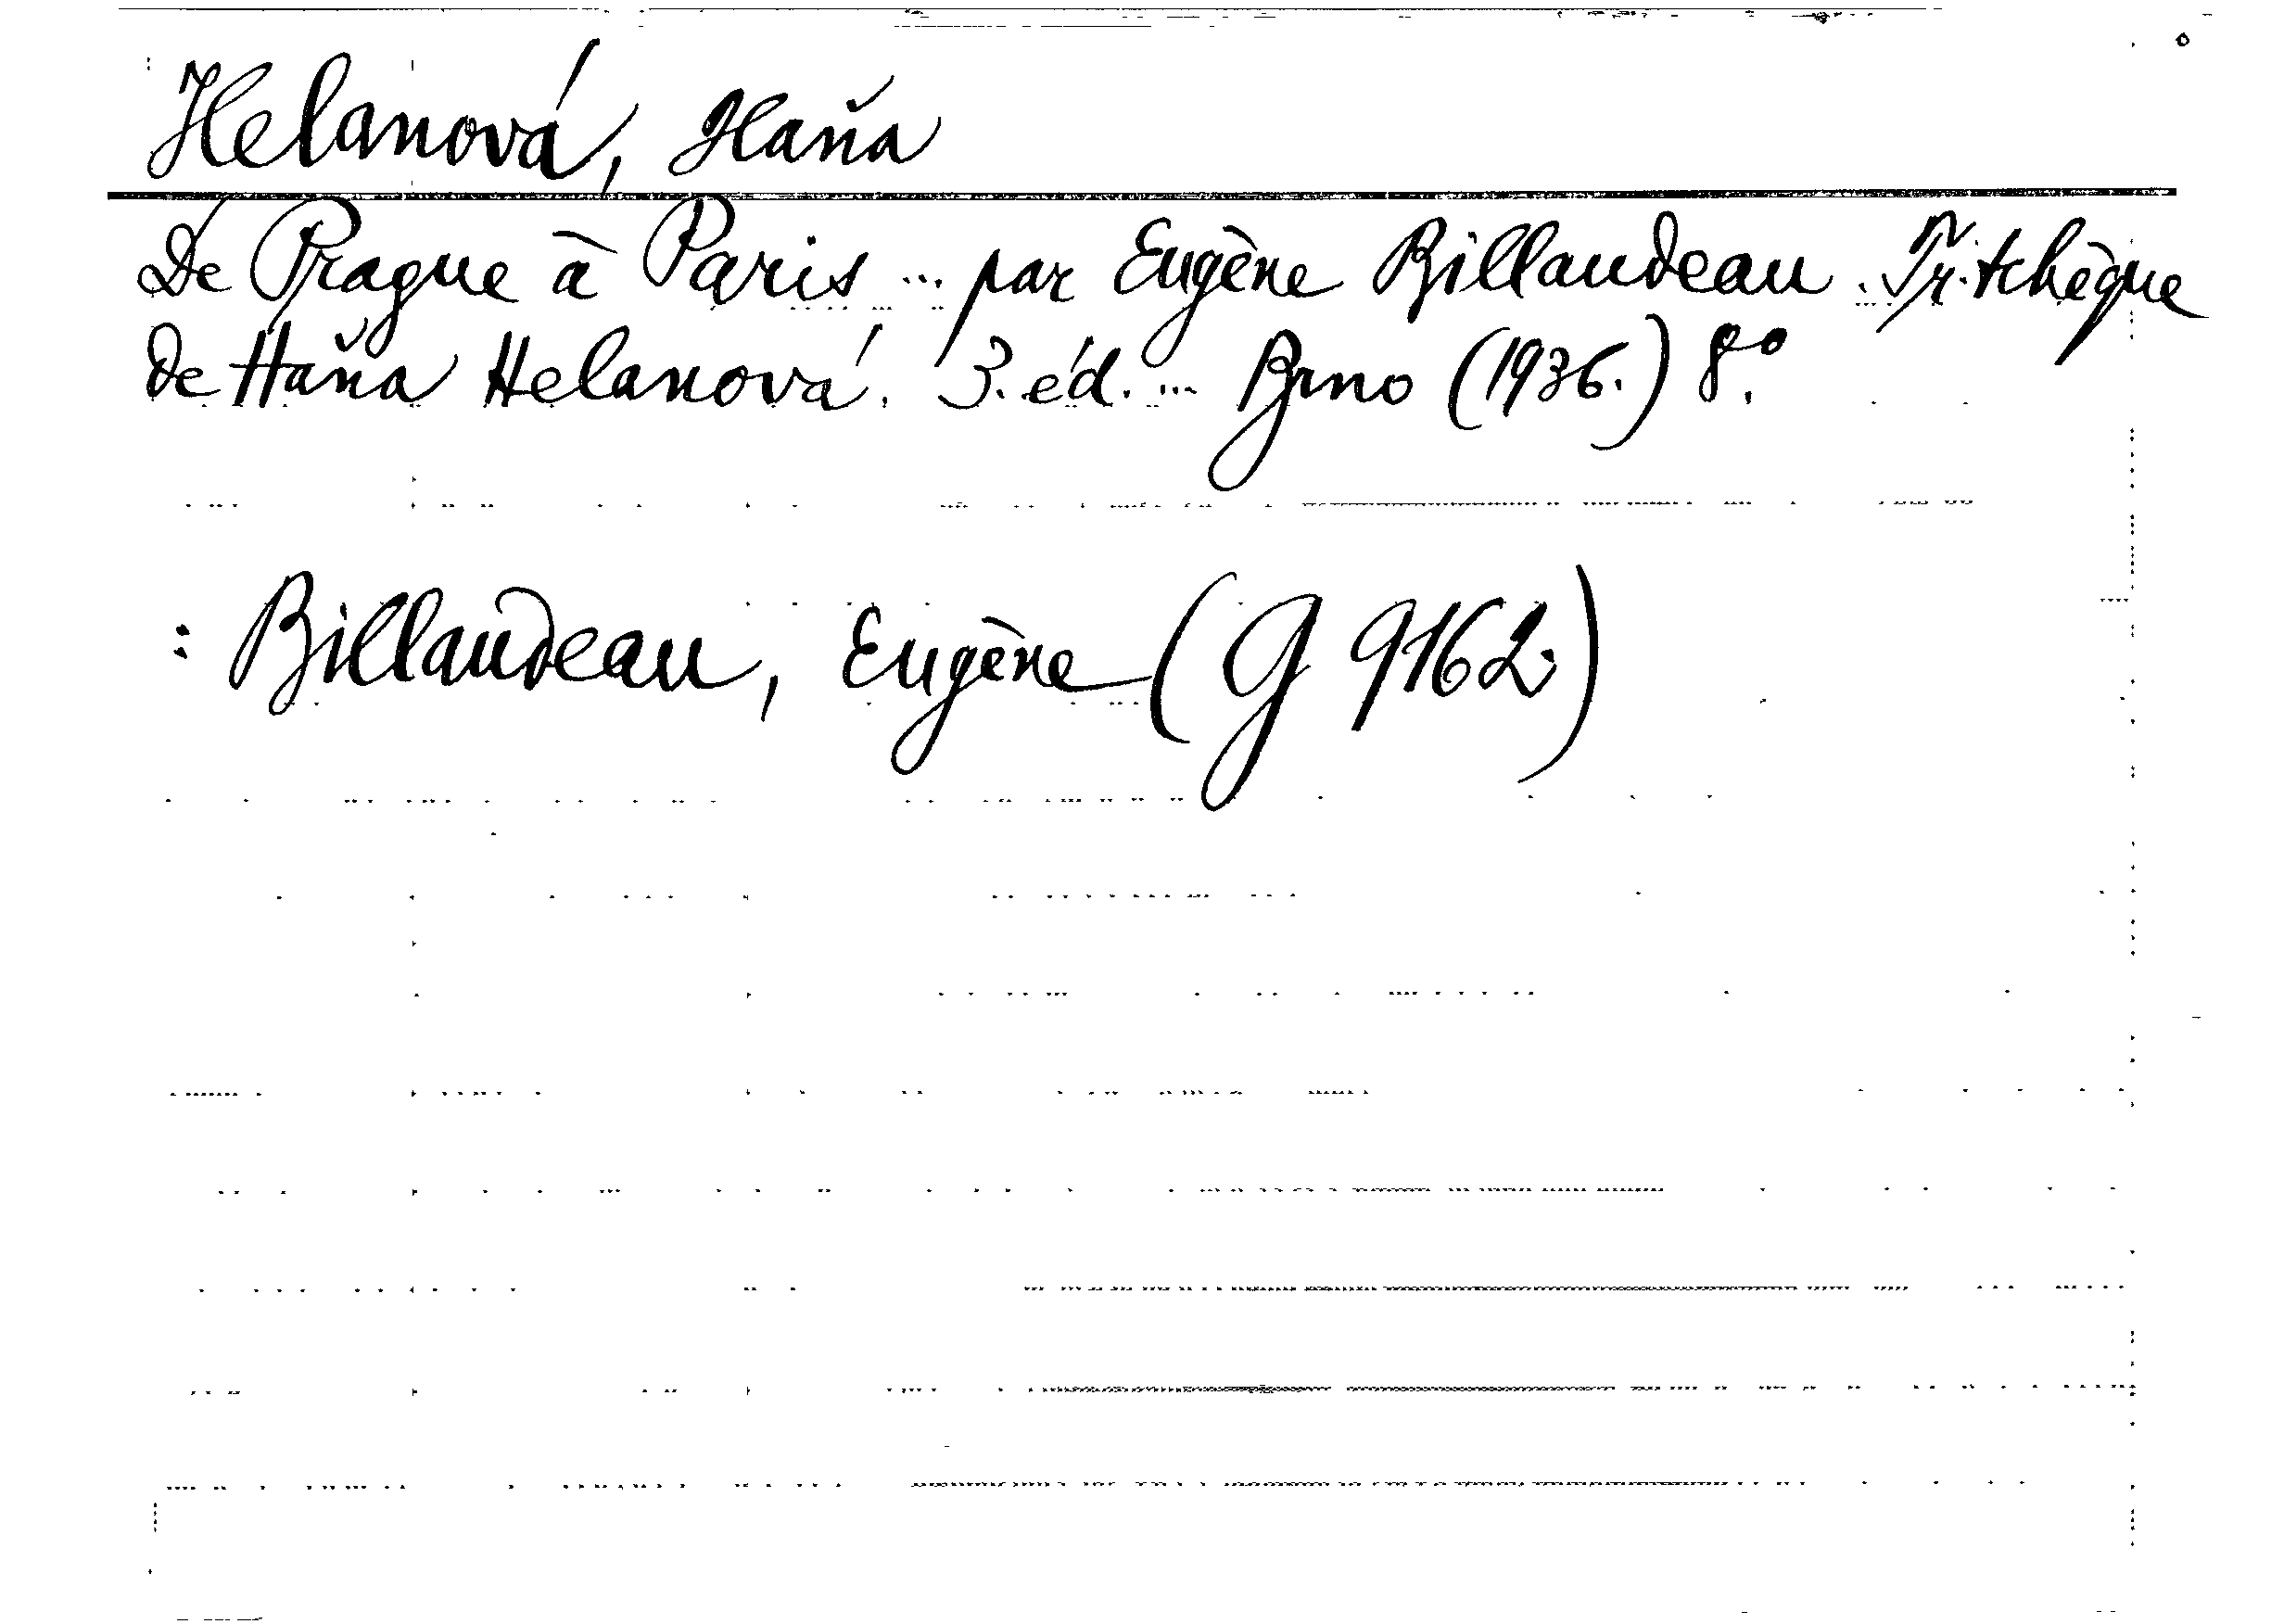 Helanová, Haňa
De Prague à Paris ... par Eugène Billaudeau. Tr. tchèque
de Haňa Helanová. 3. éd. ... Brno (1936.) 8°.
: Billaudeau, Eugène (G 9162.)